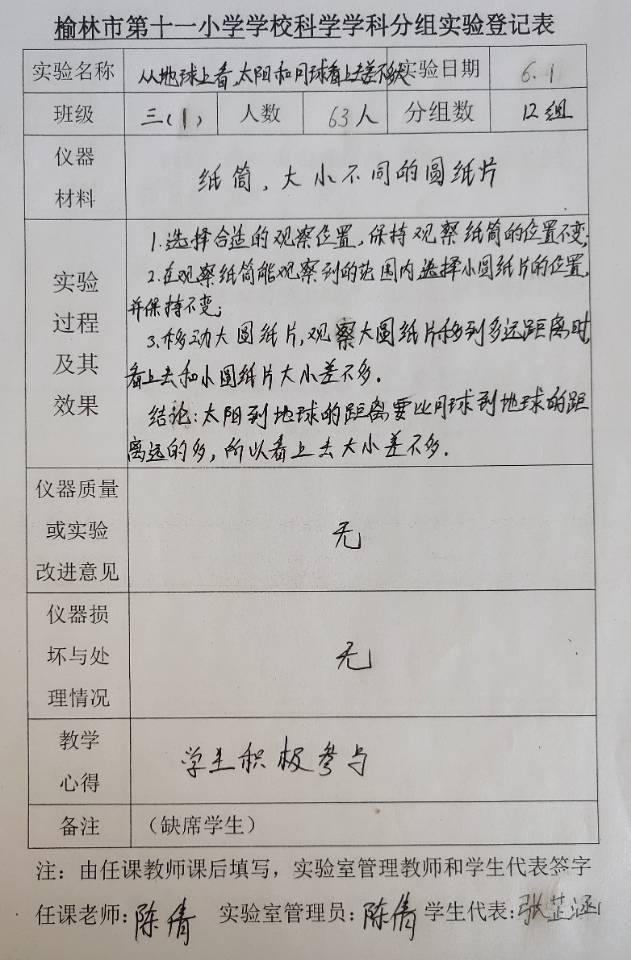 榆林市第十一小学学校科学学科分组实验登记表
实验名称 从地球上看,太阳和月球看上去差不多大 实验日期 6.1
班级 三(1) 人数 63人 分组数 12组
仪器
材料
纸筒,大小不同的圆纸片
实验
过程
及其
效果
1.选择合适的观察位置,保持观察纸筒的位置不变;
2.在观察纸筒能观察到的范围内,选择小圆纸片的位置,
并保持不变;
3.移动大圆纸片,观察大圆纸片移到多远距离时
看上去和小圆纸片大小差不多.
结论:太阳到地球的距离要比月球到地球的距
离远的多,所以看上去大小差不多.
仪器质量
或实验
改进意见
无
仪器损
坏与处
理情况
无
教学
心得
学生积极参与
备注 (缺席学生)
注:由任课教师课后填写,实验室管理教师和学生代表签字
任课老师:陈倩 实验室管理员:陈倩 学生代表:张芷涵